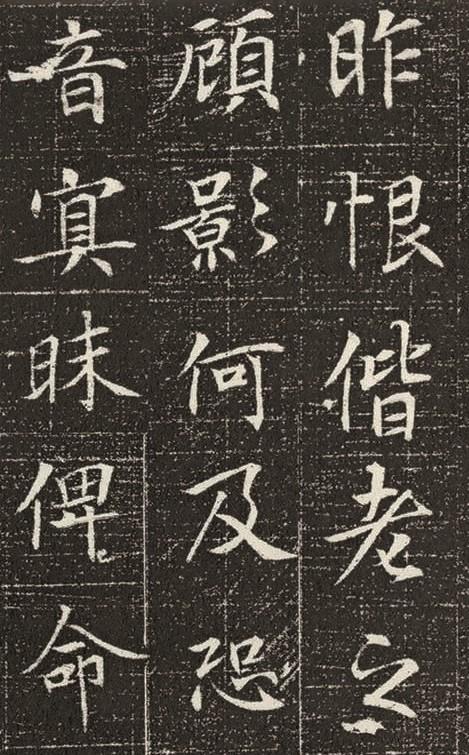 昨恨偕老之
顧影何及恐
音寘昧俾命